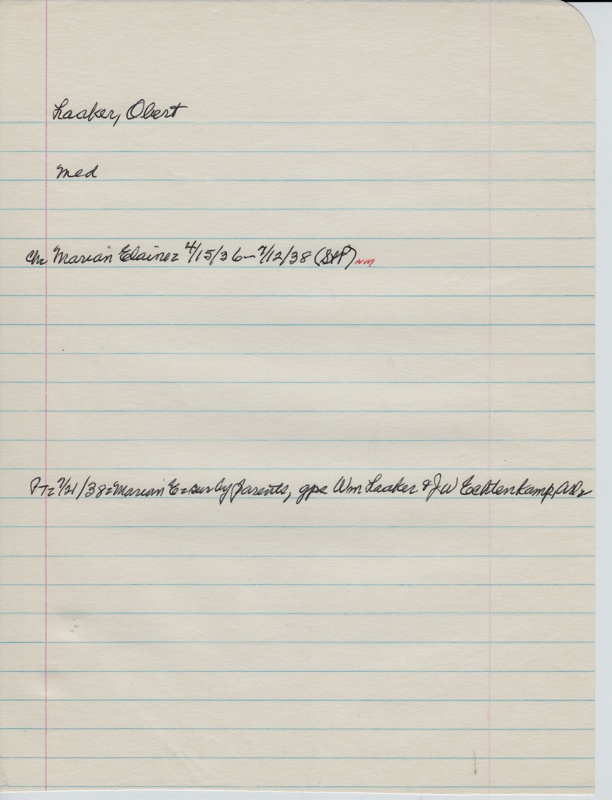 Laaker, Obert
med
ch: Marian Elaine: 4/15/36 - 7/12/38 (SPP) NM
PT: 7/21/38: Marian E: sur by parents, gpa Wm Laaker & J W Echtenkamp,